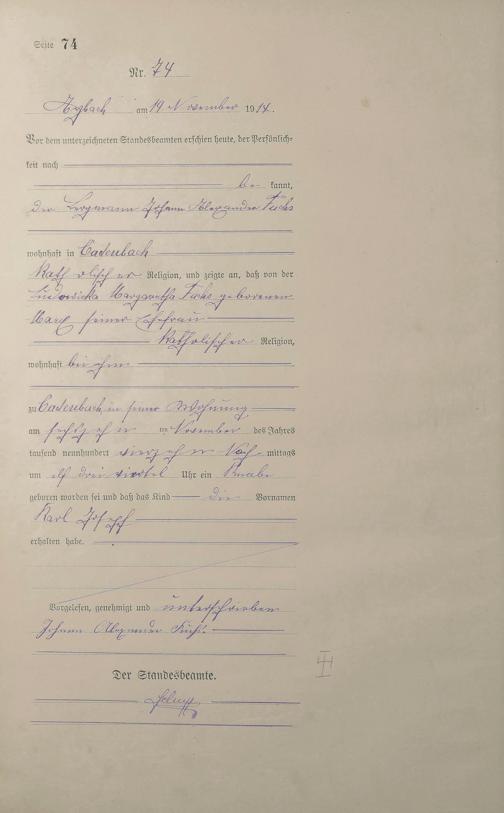 Seite 74
Nr. 74
Arzbach am 19 November 1914.
Vor dem unterzeichneten Standesbeamten erschien heute, der Persönlich-
keit nach
be kannt,
der Bergmann Johann Alexander Fuchs
wohnhaft in Cadenbach
Katholischer Religion, und zeigte an, daß von der
Ludowika Margaretha Fuchs geborenen
seiner Ehefrau
Katholischer Religion,
wohnhaft bei ihm
zu Cadenbach in seiner Wohnung
am sechszehn ten November des Jahres
tausend neunhundert vierzehn Nach mittags
um elf drei viertel Uhr ein Knabe
geboren worden sei und daß das Kind die Vornamen
Karl Josef
erhalten habe.
Vorgelesen, genehmigt und unterschrieben
Johann Alexander Fuchs.
Der Standesbeamte.